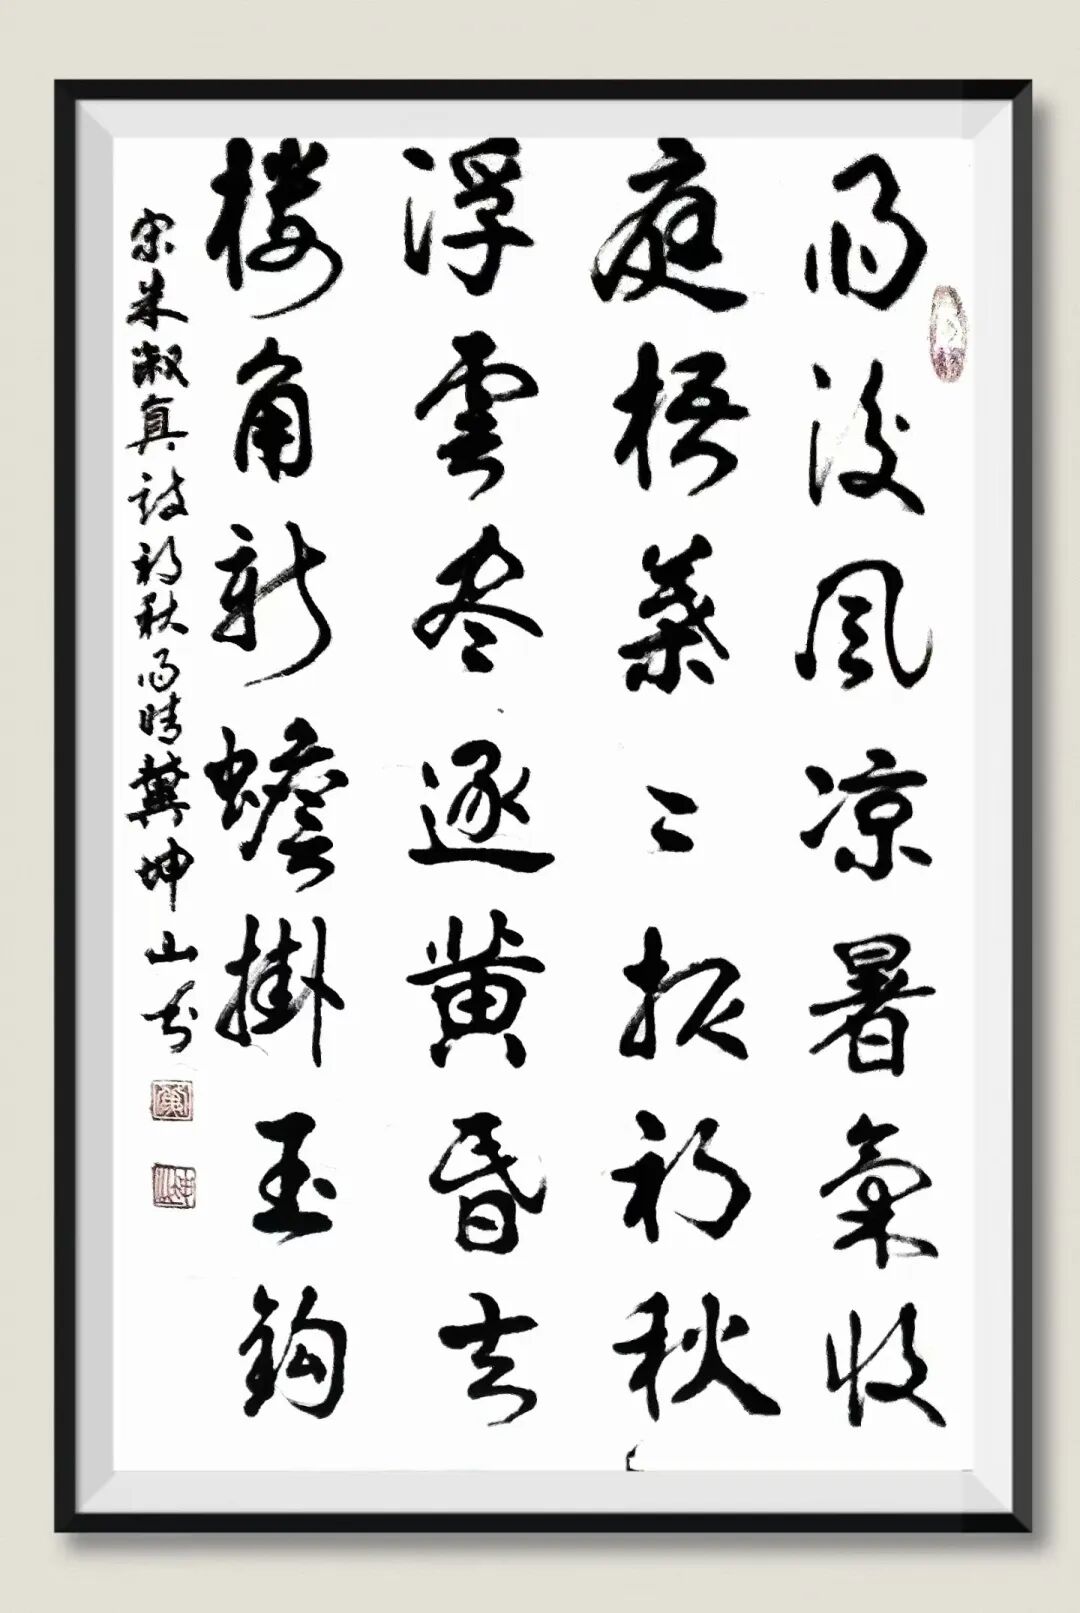 雨後風凉暑氣收
庭梧葉〻報初秋
浮雲盡逐黄昏去
楼角新蟾掛玉鈎
宋朱淑真詩初秋雨晴冀坤山书